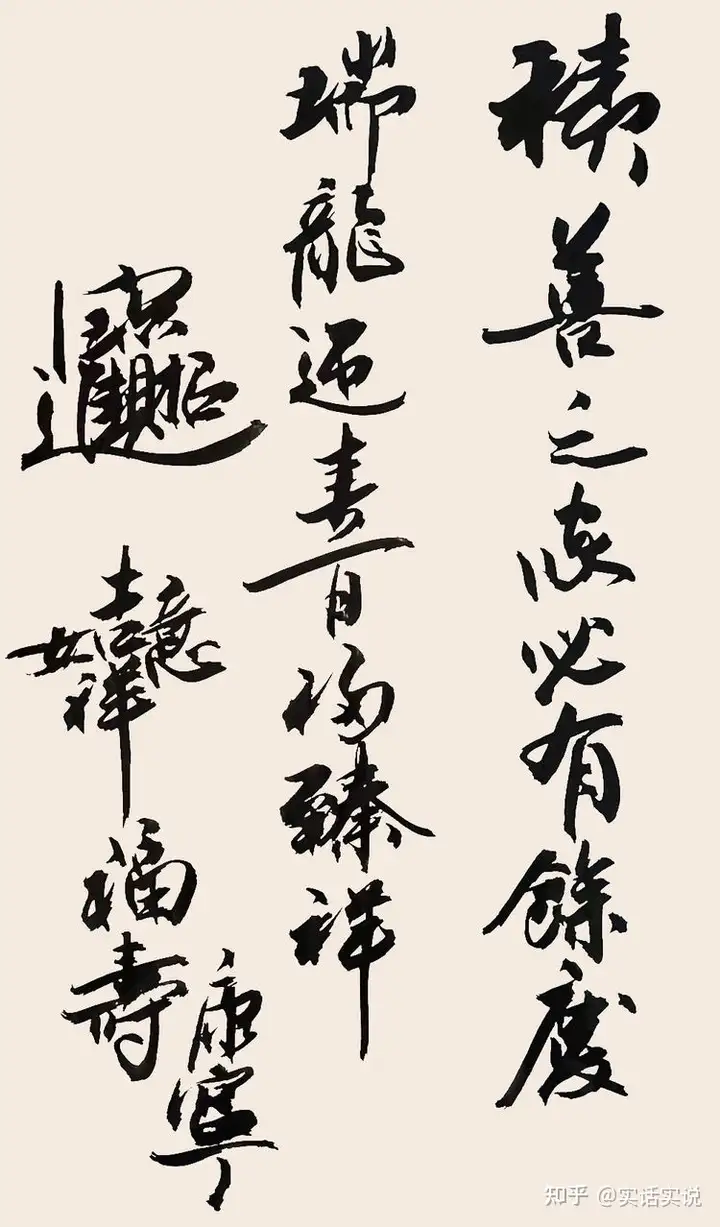 積善之家必有餘慶
瑞龍迎春百福臻祥
招財進寶
吉祥如意
福壽
康寧
知乎 @实话实说